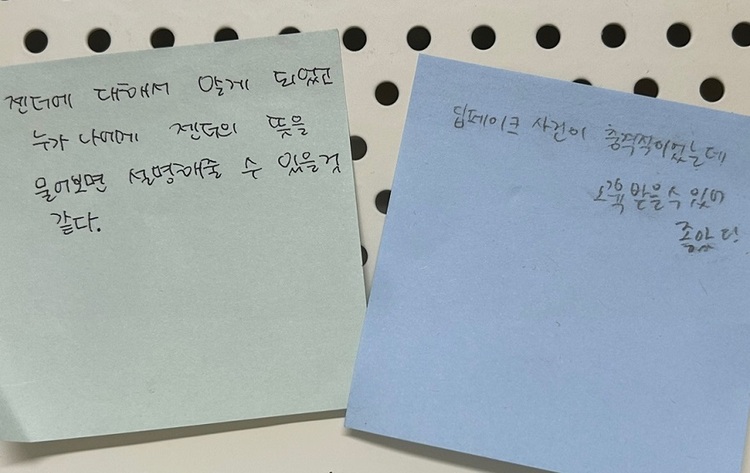 젠더에 대해서 알게 되었고
누가 나에게 젠더의 뜻을
물어보면 설명해줄 수 있을것
같다.
딥페이크 사건이 충격적이었는데
교육 받을 수 있어
좋았다